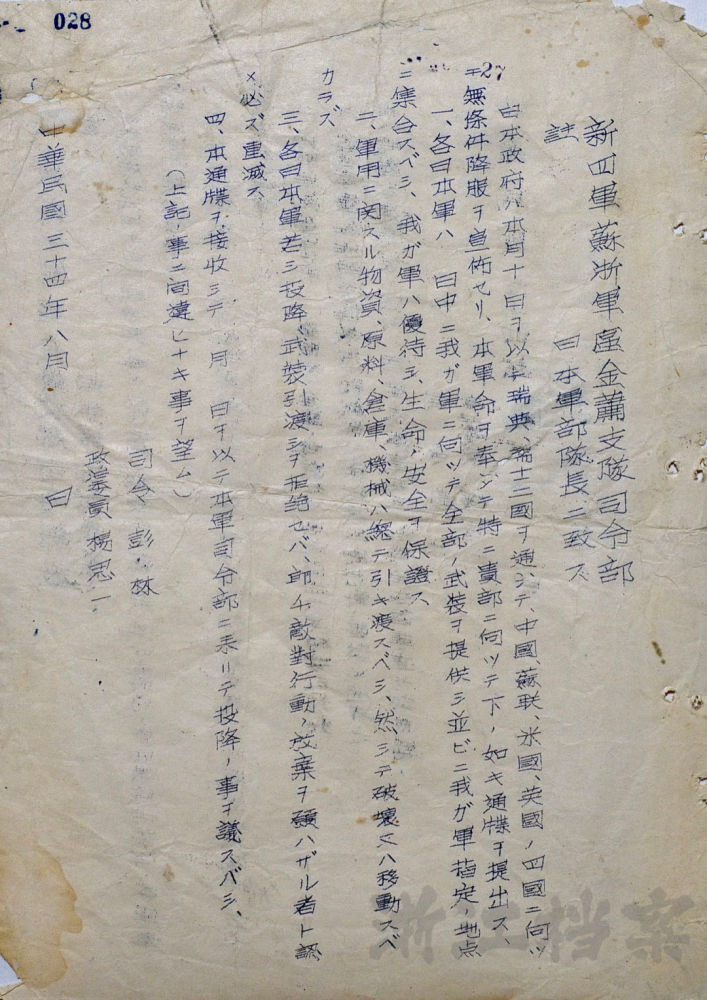 028
27
新四軍蘇浙軍區金蕭支隊司令部
註　　日本軍部隊長ニ致ス
日本政府ハ本月十日ヲ以テ瑞典、瑞士二國ヲ通シテ、中國、蘇联、米國、英國ノ四國ニ向ツ
テ無條件降服ヲ宣佈セリ、本軍命ヲ奉ジテ特ニ貴部ニ向ツテ下ノ如キ通牒ヲ提出ス、
一、各日本軍ハ　日中ニ我ガ軍ニ向ツテ全部ノ武裝ヲ提供シ並ビニ我ガ軍指定ノ地点
ニ集合スベシ、我ガ軍ハ優待シ、生命ノ安全ヲ保證ス
二、軍用ニ関スル物資、原料、倉庫、機械ハ總テ引キ渡スベシ、然シテ破壞又ハ移動スベ
カラズ
三、各日本軍若シ投降、武裝引渡シヲ拒絶セバ、即チ敵對行動ノ放棄ヲ願ハザル者ト認
×必ズ重滅ス
四、本通牒ヲ接收シテ　月　日ヲ以テ本軍司令部ニ来リテ投降ノ事ヲ議スベシ、
（上記ノ事ニ间違ヒナキ事ヲ望ム）
司令　彭　林
政治委員　楊思一
中華民國三十四年八月　　日
浙江档案